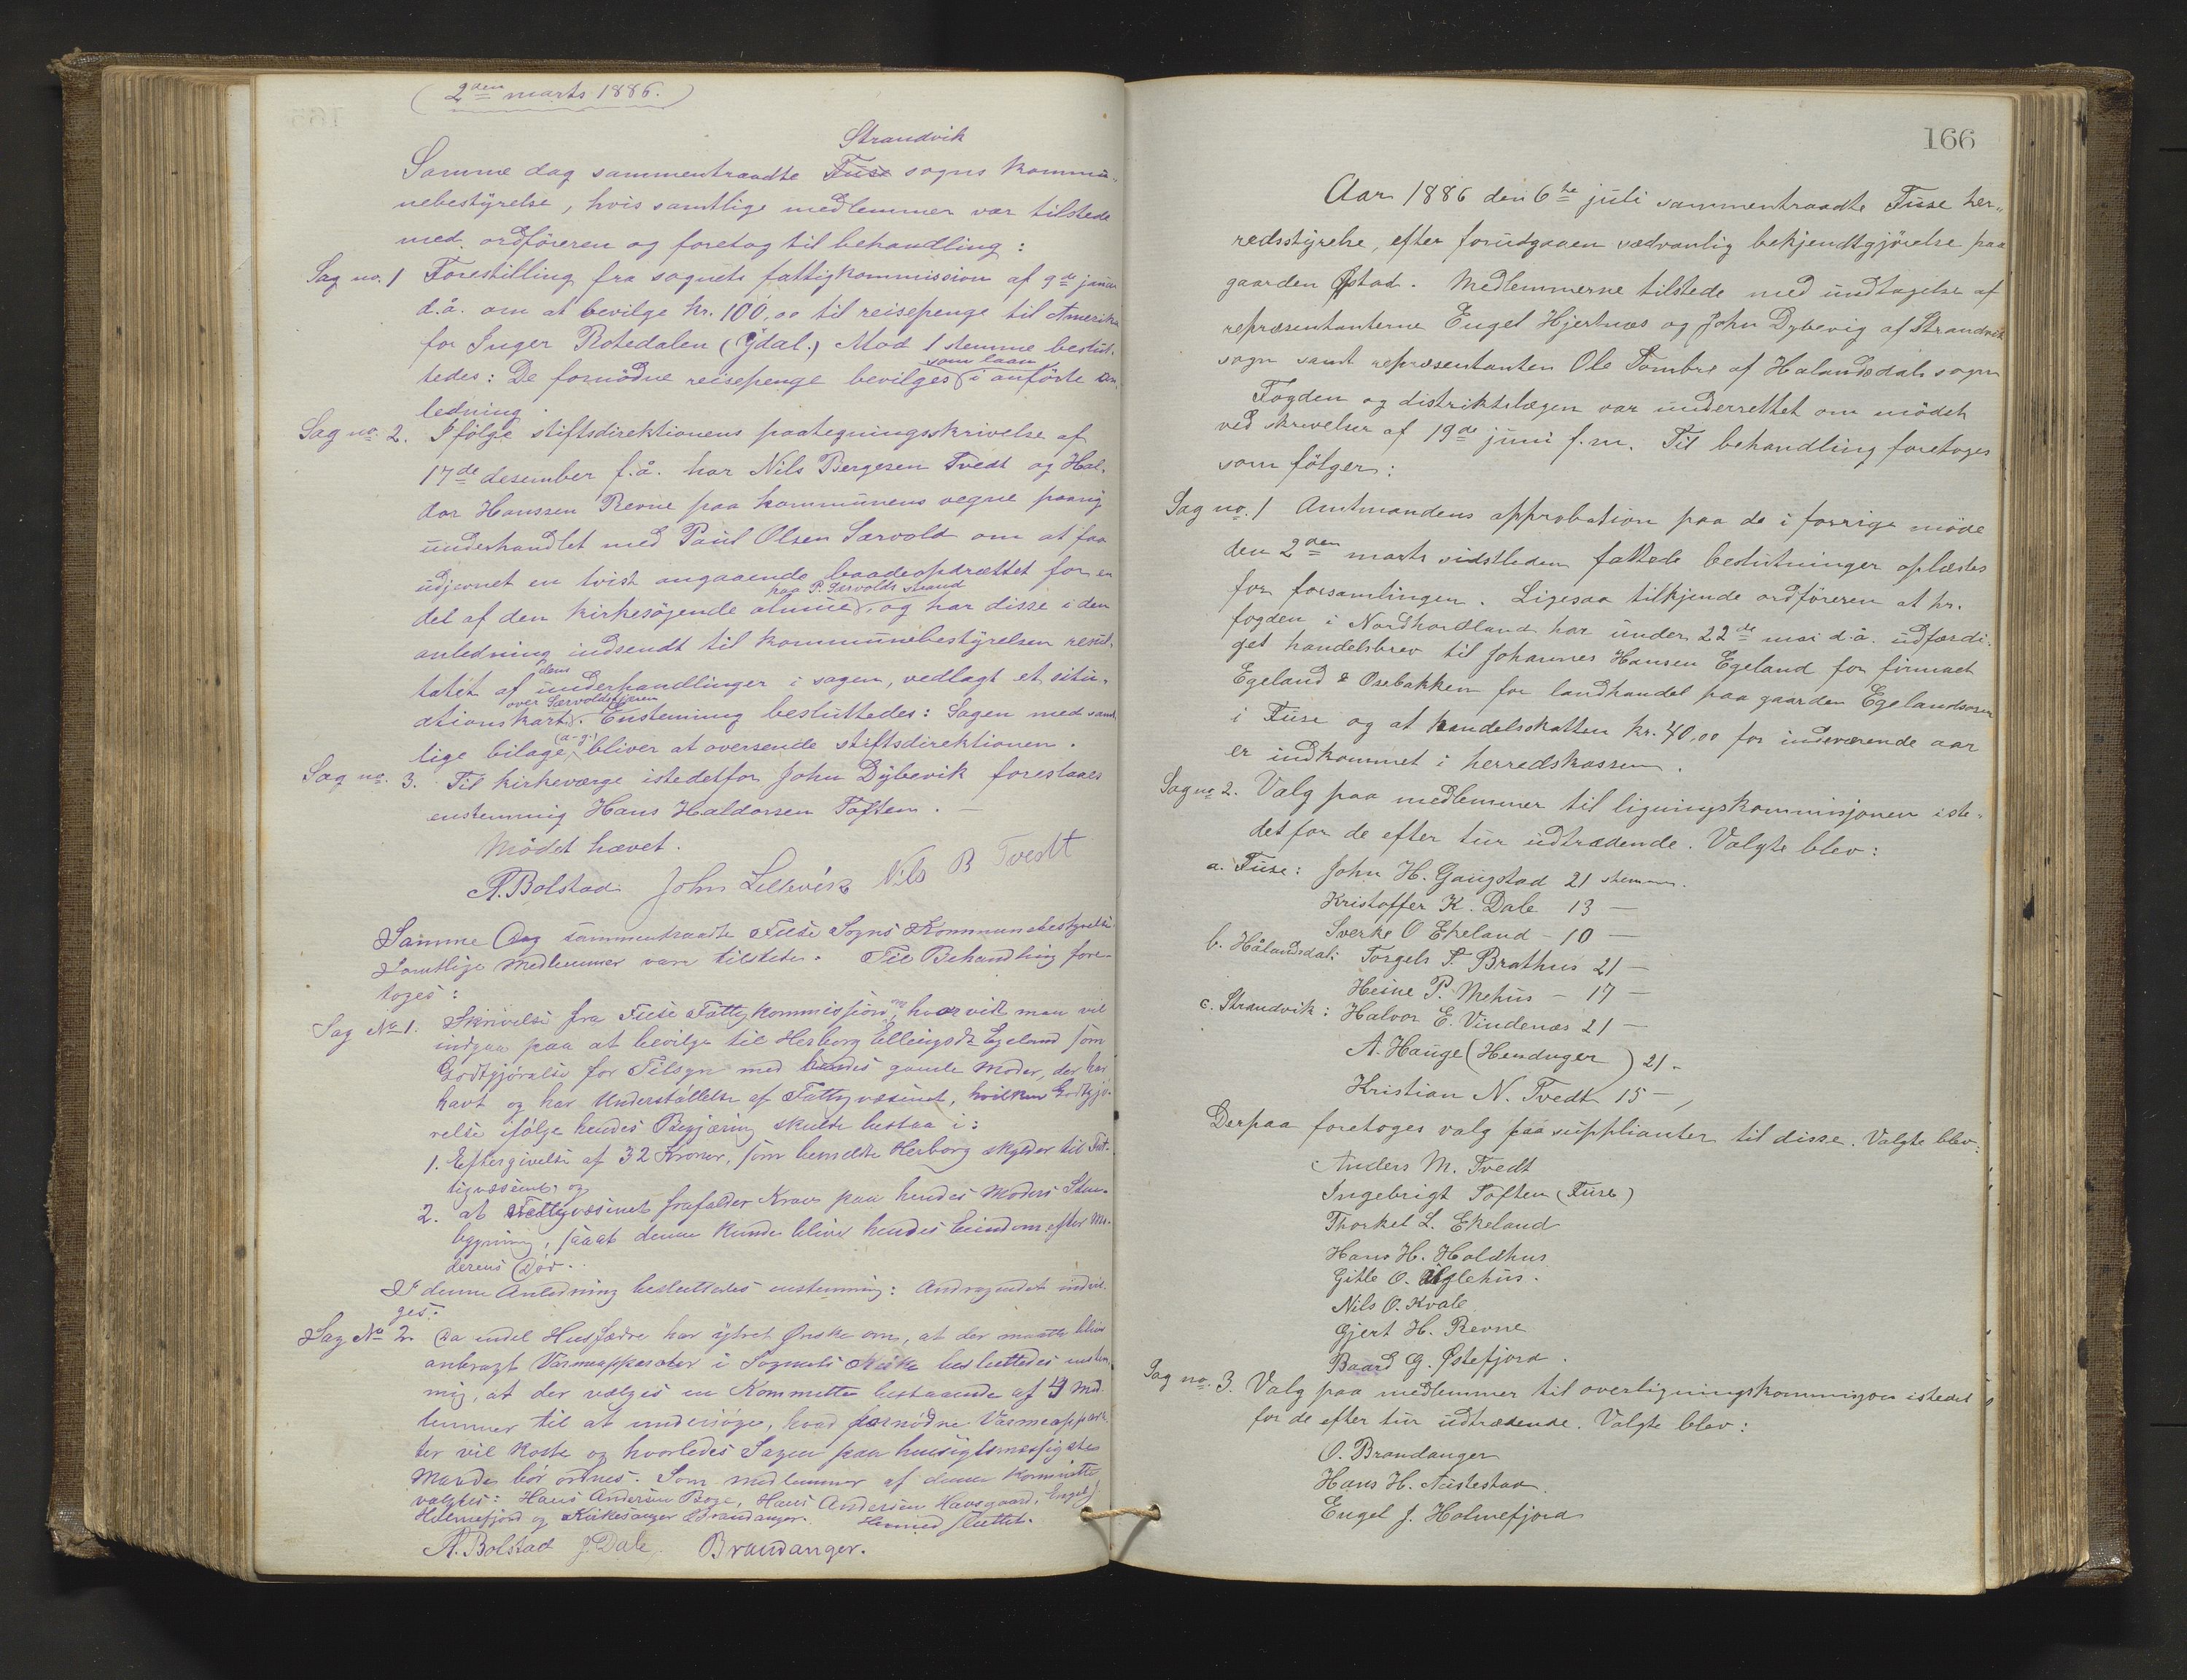 (2den marts 1886.)
Strandvik
Samme dag sammentraadte Fuse sogns kommu-
nebestyrelse, hvis samtlige medlemmer var tilstede
med ordföreren og foretog til behandling:
Sag no. 1 Forestilling fra sognets fattigkommission af 9de januar
d.å. om at bevilge kr. 100,00 til reisepenge til Amerika
for Inger Rotedalen (Ydal.) Mod 1 stemme beslut-
som laan
tedes: De fornödne reisepenge bevilges i anförte an-
ledning.
Sag no. 2. Ifölge stiftsdirektionens paategningsskrivelse af
17de desember f.å. har Nils Bergesen Tvedt og Hal-
dor Hanssen Revne paa kommunens vegne paany
underhandlet med Paul Olsen Særvold om at faa
udjevnet en tvist angaaende baadeopdrættet for en
paa P. Særvolds strand
del af den kirkesögende almue, og har disse i den
anledning indsendt til kommunebestyrelsen resul-
dens
tatet af underhandlinger i sagen, vedlagt et situ-
over Særvoldstjönn
ationskart. Enstemmig besluttedes: Sagen med samt-
(a-g.)
lige bilage bliver at oversende stiftsdirektionen.
Sag no. 3. Til kirkeværge istedetfor John Dybevik foreslaaes
enstemmig Hans Haldorsen Toften. —
Mödet hævet.
A. Bolstad John Lillevik Nils B Tvedt
Samme Dag sammentraadte Fuse Sogns Kommunebestyrelse
Samtlige Medlemmer vare tilstede. Til Behandling fore-
toges:
Sag No 1. Skrivelse fra Fuse Fattigkommission, hvorvidt man vil
indgaa paa at bevilge til Herborg Ellingsdt. Egeland som
Godtgjörelse for Tilsyn med hendes gamle Moder, der har
havt og har Understøttelse af Fattigvæsenet, hvilken Godtgjö-
relse ifölge hendes Begjæring skulde bestaa i:
1. Eftergivelse af 32 Kroner, som bemeldte Herborg skylder til Fat-
tigvæsenet, og
2. at Fattigvæsenet frafalder Krav paa hendes Moders Stue-
bygning, saaat denne kunde blive hendes Eiendom efter Mo-
derens Död.
I denne Anledning besluttedes enstemmig: Andragendet indvil-
ges.
Sag No 2. Da endel Husfædre har ytret Ønske om, at der maatte blive
anbragt Varmeapparater i Sognets Kirke besluttedes enstem-
mig, at der vælges en Kommitte bestaaende af 4 Med-
lemmer til at undersöge, hvad fornödne Varmeappara-
ter vil koste og hvorledes Sagen paa hensigtsmæssigste
Maade bör ordnes. Som medlemmer af denne Kommitte
valgtes: Hans Andersen Boge, Hans Andersen Havsgaard, Engel J
Holmefjord og Kirkesanger Brandanger. Hermed sluttet.
A. Bolstad J. Dale. Brandanger.
166
Aar 1886 den 6te juli sammentraadte Fuse her-
redsstyrelse, efter forudgaaen sædvanlig bekjendtgjörelse paa
gaarden Østad. Medlemmerne tilstede med undtagelse af
repræsentanterne Engel Hjertnæs og John Dybevig af Strandvik
sogn samt repræsentanten Ole Tombre af Halandsdals sogn
Fogden og distriktslægen var underrettet om mödet
ved skrivelser af 19de juni f.m. Til behandling foretoges
som fölger:
Sag no. 1 Amtmandens approbation paa de i forrige möde
den 2den marts sidstleden fattede beslutninger oplæstes
for forsamlingen. Ligesaa tilkjende ordföreren at hr.
fogden i Nordhordland har under 22de mai d.å. udfærdi-
get handelsbrev til Johannes Hansen Egeland for firmaet
Egeland & Osebakken for landhandel paa gaarden Egelandsosen
i Fuse og at handelsskatten kr. 40,00 for indeværende aar
er indkommet i herredskassen.
Sag no 2. Valg paa medlemmer til ligningskommisjonen iste-
detfor de efter tur udtrædende. Valgte blev:
a. Fuse: John H. Gaugstad 21 stemmer.
Kristoffer K. Dale 13 —
Sverke O Ekeland - 10 —
b. Hålandsdal: Torgels T. Brathus 21 —
Heine P. Mehus - 17 —
c. Strandvik: Halvor E. Vindenæs 21 —
A. Hauge (Henanger) 21 -
Kristian N. Tvedt 15 —
Derpaa foretoges valg paa supplianter til disse. Valgte blev:
Anders M. Tvedt
Ingebrigt Toften (Fuse)
Thorkel L. Ekeland
Hans H. Holdhus
Gitle O. Uglehus.
Nils O. Kvale
Gjert H. Revne
Baard G. Østefjord.
Sag no. 3. Valg paa medlemmer til overligningskommisjon istedet
for de efter tur udtrædende. Valgte blev:
O. Brandanger
Hans H. Austestad.
Engel J. Holmefjord